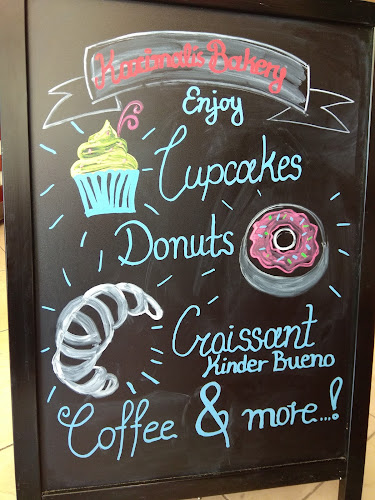 Karimali's Bakery
Enjoy
Cupcakes
Donuts
Croissant
Kinder Bueno
Coffee & more...!